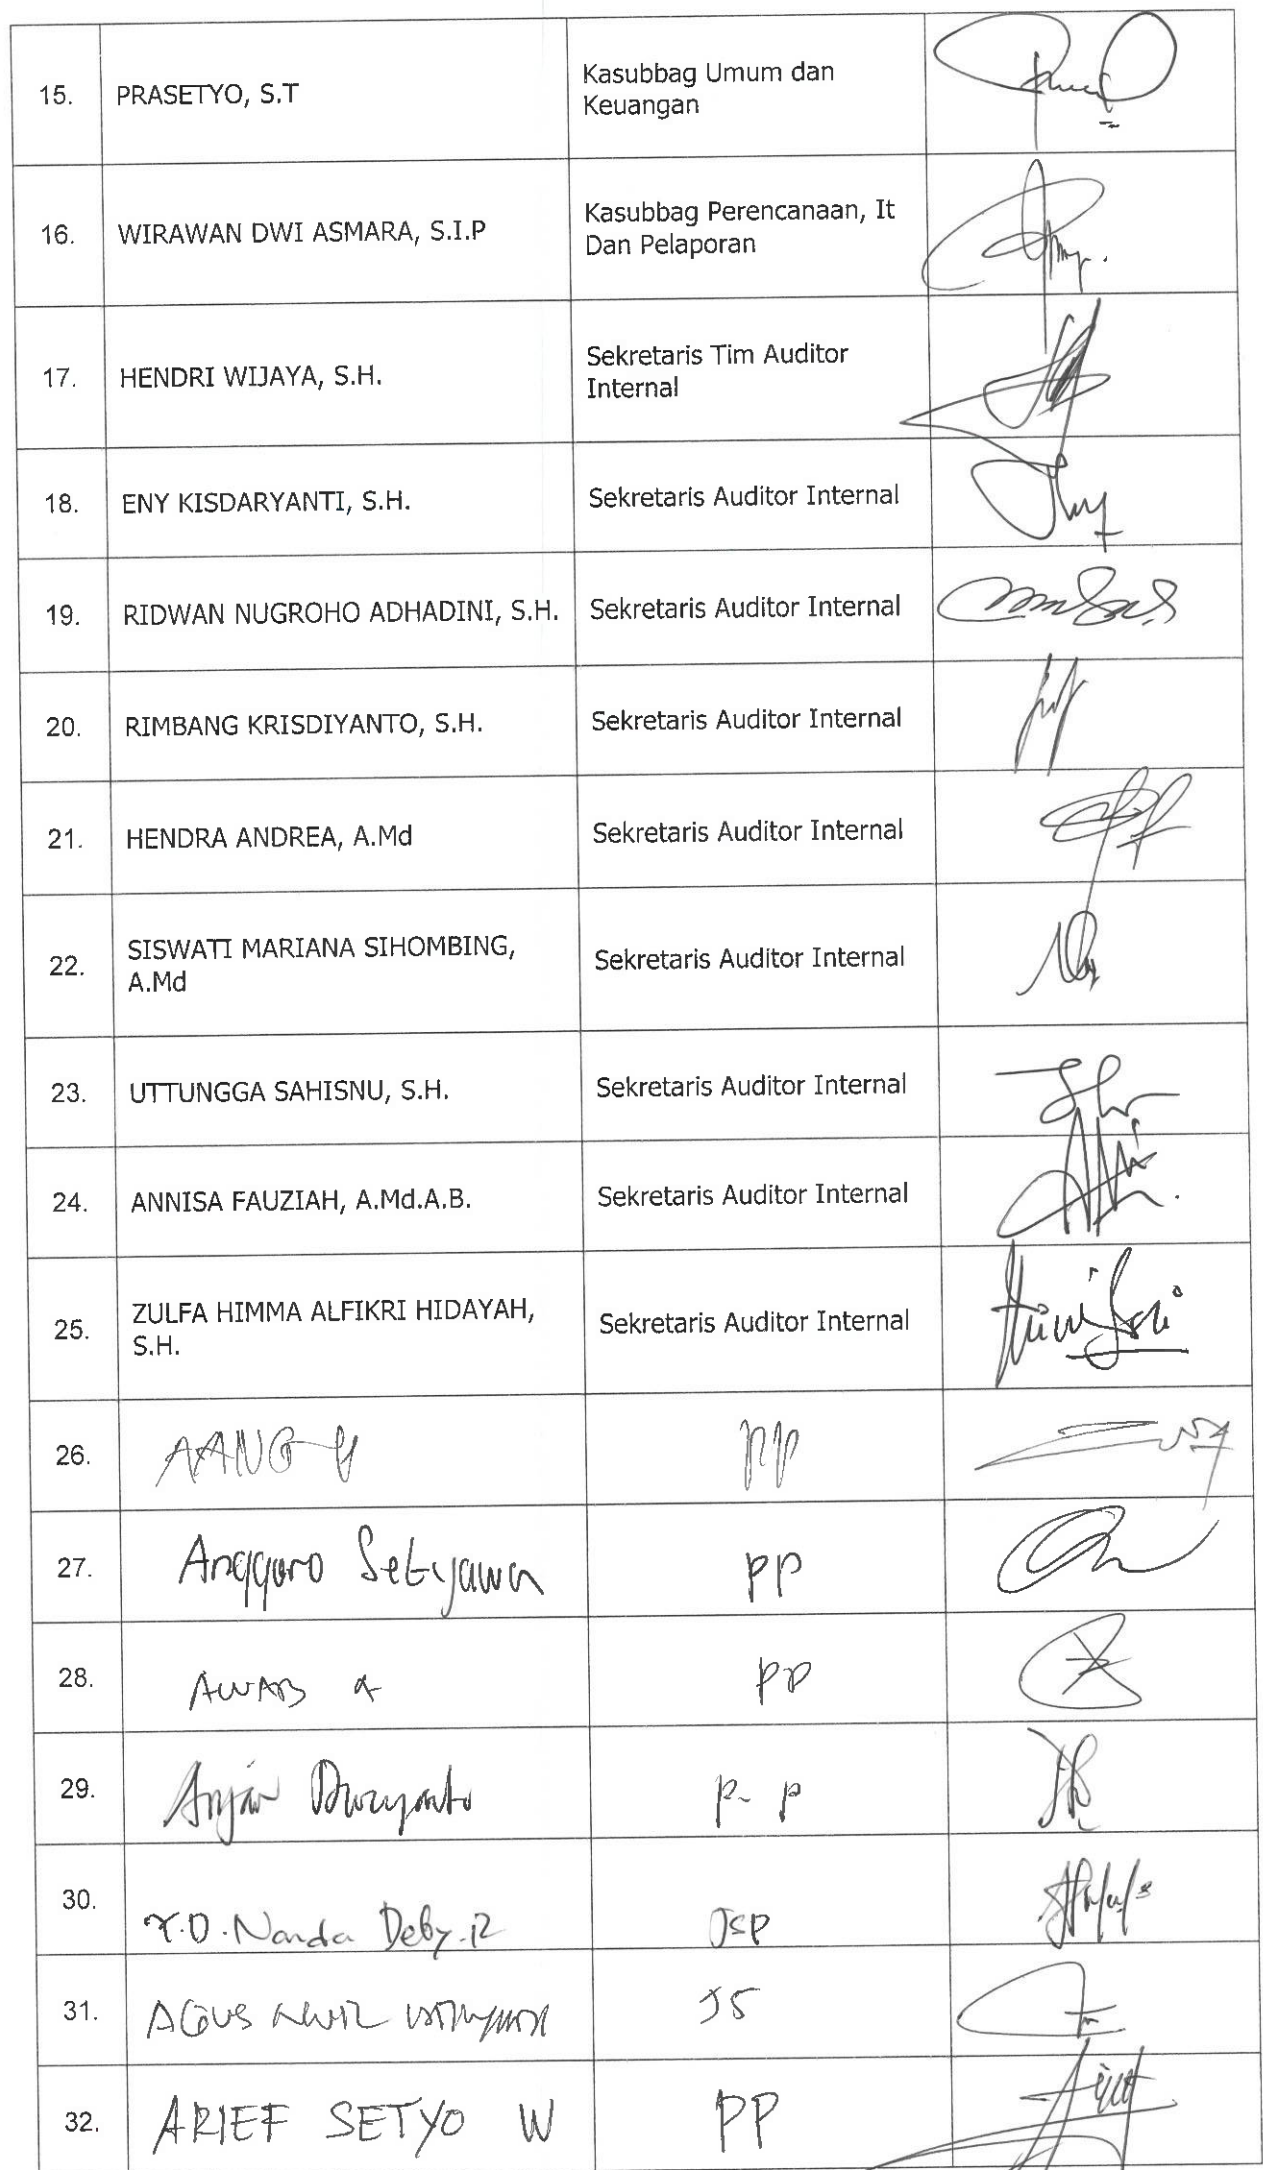 15. PRASETYO, S.T Kasubbag Umum dan
Keuangan
16. WIRAWAN DWI ASMARA, S.I.P Kasubbag Perencanaan, It
Dan Pelaporan
17. HENDRI WIJAYA, S.H. Sekretaris Tim Auditor
Internal
18. ENY KISDARYANTI, S.H. Sekretaris Auditor Internal
19. RIDWAN NUGROHO ADHADINI, S.H. Sekretaris Auditor Internal
20. RIMBANG KRISDIYANTO, S.H. Sekretaris Auditor Internal
21. HENDRA ANDREA, A.Md Sekretaris Auditor Internal
22. SISWATI MARIANA SIHOMBING,
A.Md Sekretaris Auditor Internal
23. UTTUNGGA SAHISNU, S.H. Sekretaris Auditor Internal
24. ANNISA FAUZIAH, A.Md.A.B. Sekretaris Auditor Internal
25. ZULFA HIMMA ALFIKRI HIDAYAH,
S.H. Sekretaris Auditor Internal
26. AANG PP
27. Anggoro Setyawan PP
28. AWAB A PP
29. P-P
30. Y.D. Nanda Deby.R JSP
31. AGUS JS
32. ARIEF SETYO W PP